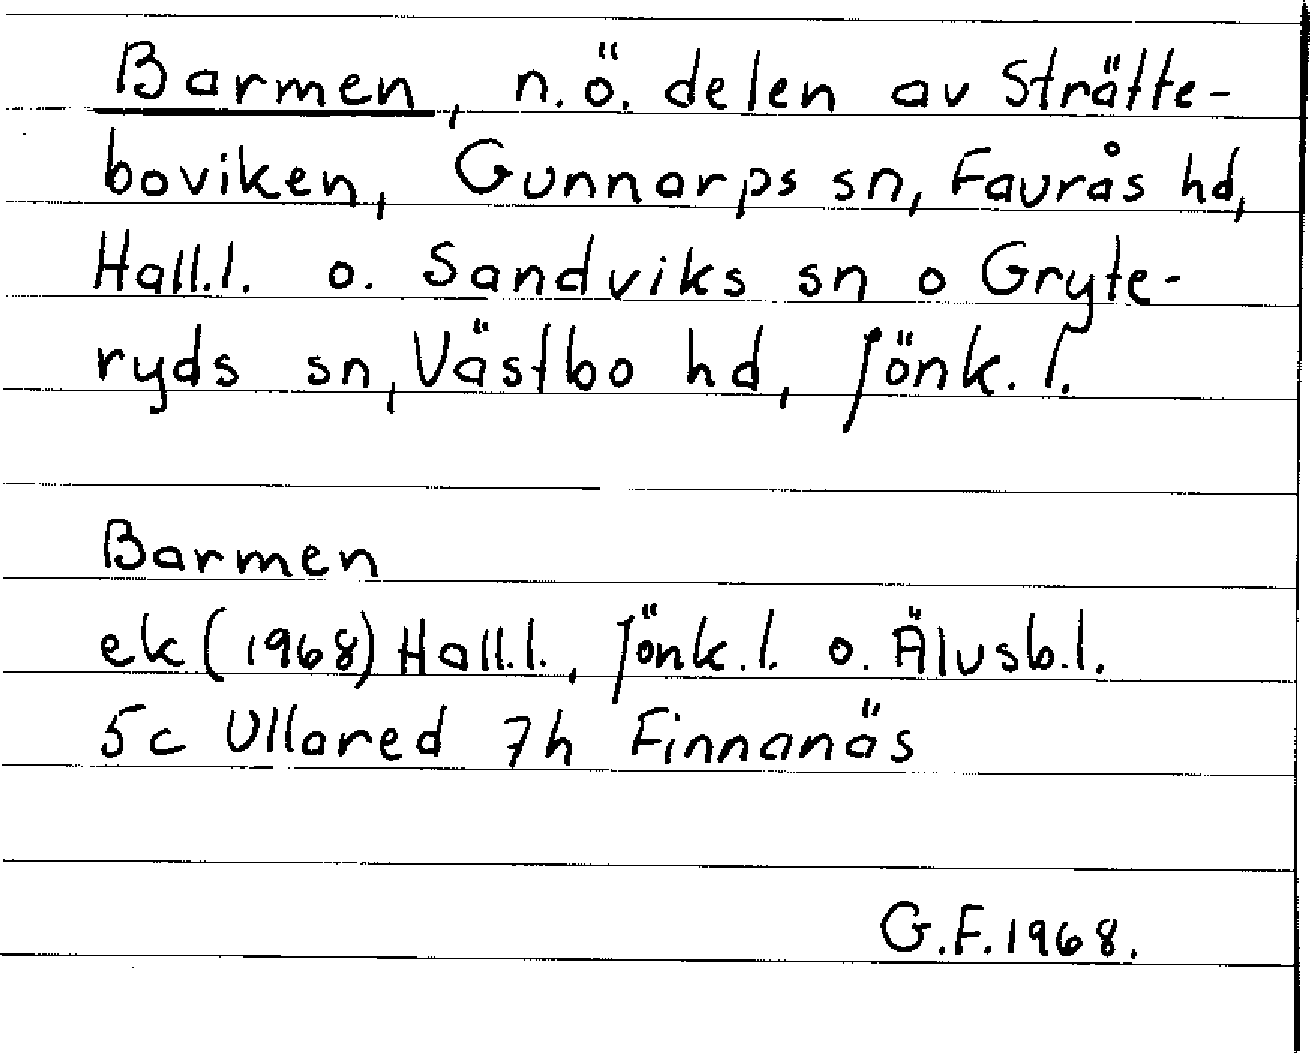 Barmen, n.ö. delen av Strätte-
boviken, Gunnarps sn, Faurås hd,
Hall.l. o. Sandviks sn o Gryte-
ryds sn, Västbo hd, Jönk. l.
Barmen
ek (1968) Hall.l., Jönk.l. o. Älvsb.l.
5c Ullared 7h Finnanäs
G.F. 1968.